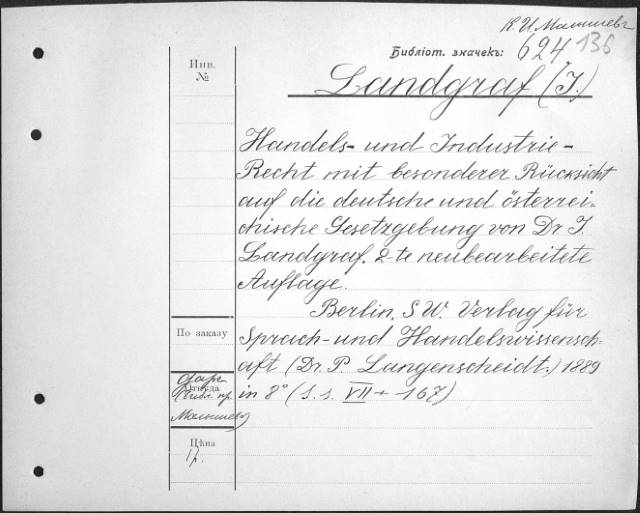 К. И. Малышевъ
Библіот. значекъ: 624 136
Инв.
№
Landgraf (J.)
Handels- und Industrie-
Recht mit besonderer Rücksicht
auf die deutsche und österrei-
chische Gesetzgebung von Dr J.
Landgraf. 2-te neubearbeitete
Auflage.
Berlin, S W. Verlag für
По заказу
Sprach- und Handelswissensch-
aft (Dr. P. Langenscheidt.) 1889
даръ
Откуда
in 8° (s.s. VIII + 167)
Малышева
Цѣна
1р.